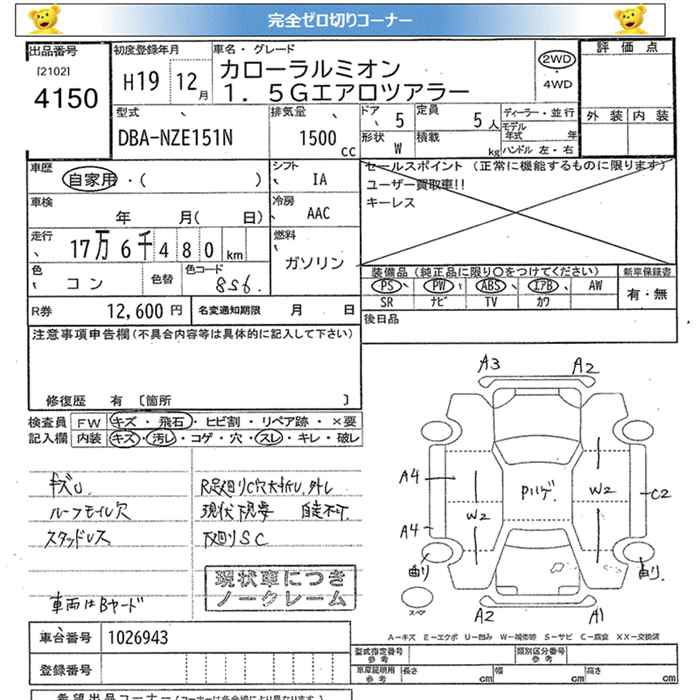 完全ゼロ切りコーナー
出品番号
[2102]
4150
初度登録年月
H19 12月
車名・グレード
カローラルミオン
1.5Gエアロツアラー
2WD
4WD
評価点
外装 内装
型式
DBA-NZE151N
排気量
1500 cc
ドア 5
定員 5人
形状 W
積載 kg
ディーラー・並行
モデル年式 年
ハンドル 左・右
車歴
自家用・( )
シフト
IA
セールスポイント (正常に機能するものに限ります)
ユーザー買取車!!
キーレス
車検
年 月( 日)
冷房
AAC
走行
17万6千480km
燃料
ガソリン
色
コン
色替
色コード
8S6.
装備品(純正品に限り○をつけてください)
新車保証書
PS PW ABS エアB AW
SR ナビ TV カワ
有・無
R券 12,600円
名変通知期限 月 日
後日品
注意事項申告欄(不具合内容等は具体的に記入して下さい)
修復歴 有 [箇所 ]
検査員
記入欄
FW キズ・飛石・ヒビ割・リペア跡・×要
内装 キズ・汚レ・コゲ・穴・スレ・キレ・破レ
キズU
ルーフモイル欠
スタッドレス
車両はBヤード
現状車につき
ノークレーム
A3 A2
A4 W2 Pハゲ W2 C2
A4
曲り 曲り
スペア
A2 A1
A-キズ E-エクボ U-凹み W-補修跡 S-サビ C-腐食 XX-交換済
車台番号 1026943
登録番号
型式指定番号
参考
類別区分番号
参考
車庫証明用
参考
長さ cm 幅 cm 高さ cm
希望出品コーナー